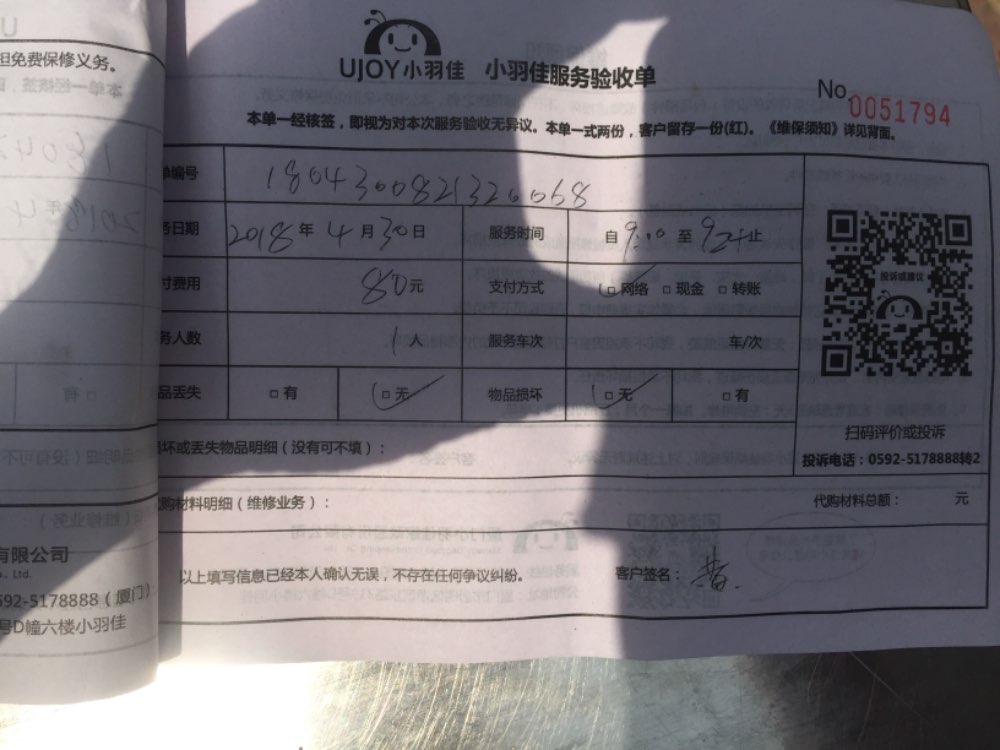 担免费保修义务。
UJOY小羽佳 小羽佳服务验收单
No.0051794
本单一经核签，即视为对本次服务验收无异议。本单一式两份，客户留存一份(红)。《维保须知》详见背面。
单编号 1804300821326068
务日期 2018年4月30日 服务时间 自9:00至 止
付费用 80元 支付方式 □网络 □现金 □转账
务人数 1人 服务车次 车/次
品丢失 □有 □无 物品损坏 □无 □有
投诉或建议
扫码评价或投诉
投诉电话：0592-5178888转2
坏或丢失物品明细（没有可不填）：
购材料明细（维修业务）： 代购材料总额： 元
以上填写信息已经本人确认无误，不存在任何争议纠纷。 客户签名：
有限公司
o., Ltd.
592-5178888（厦门）
号D幢六楼小羽佳